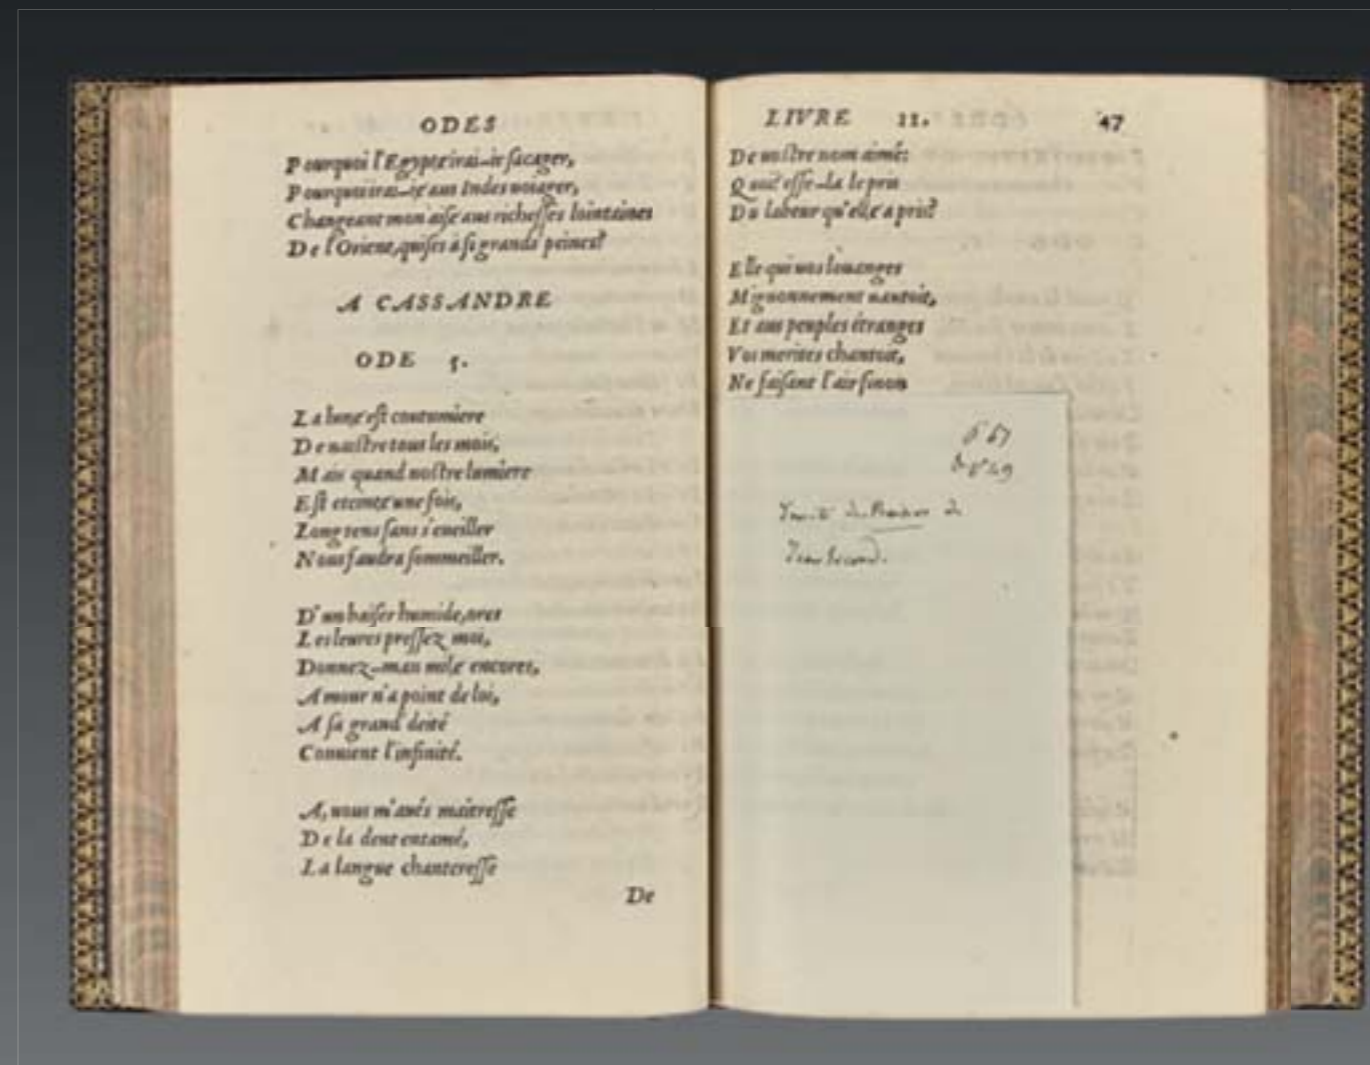 ODES
Pourquoi l'Egypte irai-ie sacager,
Pourquoi irai-ie aus Indes voiager,
Changeant mon aise aus richesses lointaines
De l'Orient, quises à si grands peines?
A CASSANDRE
ODE 5.
La lune est coutumiere
De naistre tous les mois,
Mais quand nostre lumiere
Est eteinte une fois,
Long tens sans s'eveiller
Nous faudra sommeiller.
D'un baiser humide, ores
Les levres pressez moi,
Donnez-m'an mile encores,
Amour n'a point de loi,
A sa grand deité
Convient l'infinité.
A, vous m'avés maitresse
De la dent entamé,
La langue chanteresse
De
LIVRE II. 47
De vostre nom aimé:
Quoi? esse-la le pris
Du labeur qu'elle a pris?
Elle qui vos louanges
Mignonnement vantoit,
Et aus peuples étranges
Vos merites chantoit,
Ne faisant l'air sinon
Jean Second.